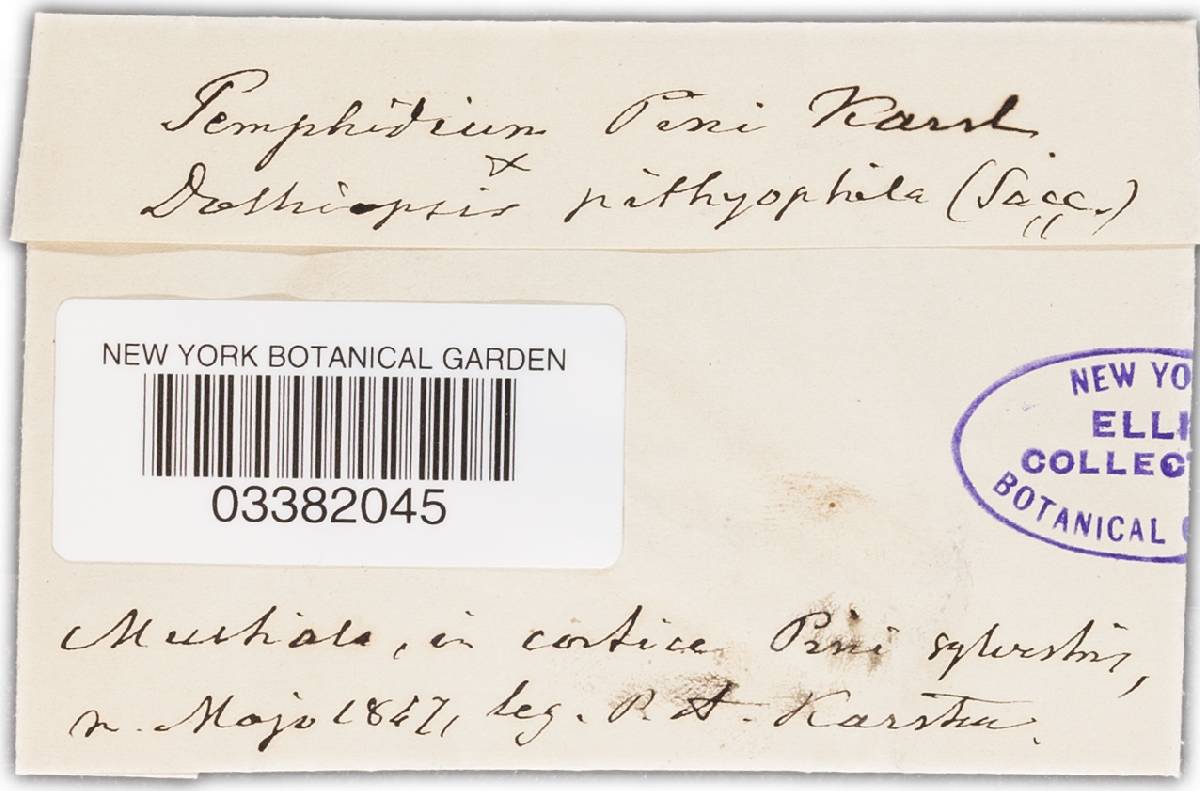 Pemphidium Pini Karst.
&
Dothiopsis pithyophila (Sacc.)
NEW YORK BOTANICAL GARDEN
03382045
NEW YO
ELLI
COLLEC
BOTANICAL
Mustiala, in cortice Pini sylvestris,
m. Majo leg. P. A. Karsten.